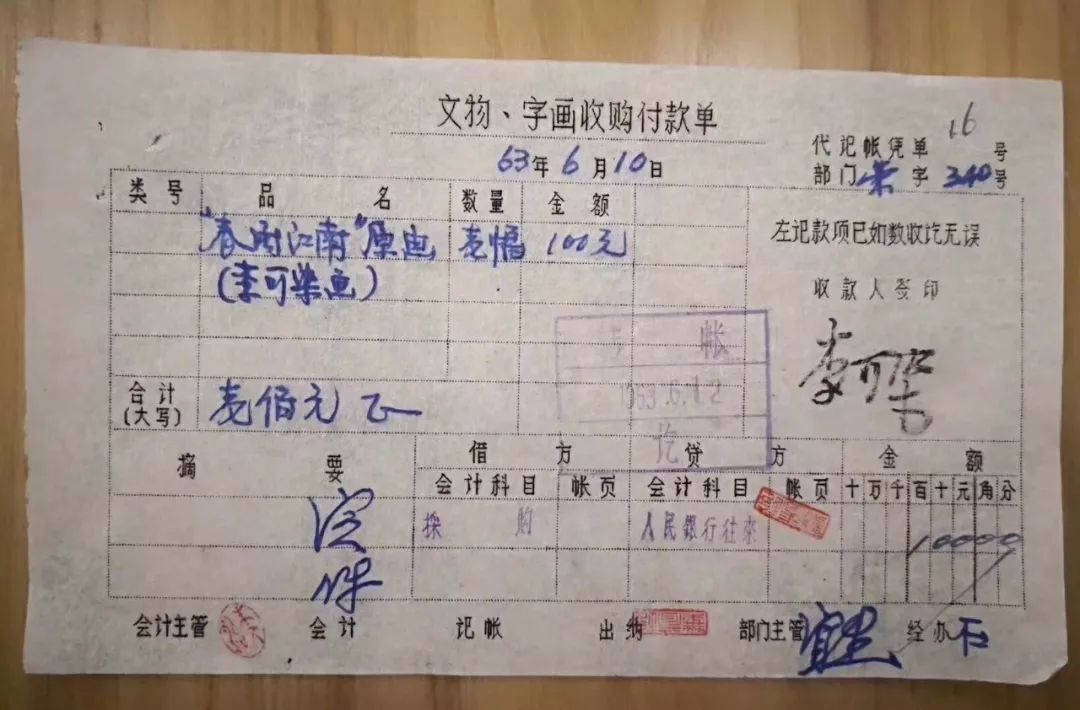 文物、字画收购付款单
16
63年6月10日
代记帐凭单 号
部门荣字340号
类号 品名 数量 金额
"春雨江南"原画 壹幅 100元
(李可染画)
左记款项已如数收讫无误
收款人签印
李可染
帐
1963.6.12
讫
合计
(大写) 壹佰元正
摘要 借方 贷方 金额
会计科目 帐页 会计科目 帐页 十万千百十元角分
採购 人民银行往来 10000
会计主管 会计 记帐 出纳 部门主管 经办